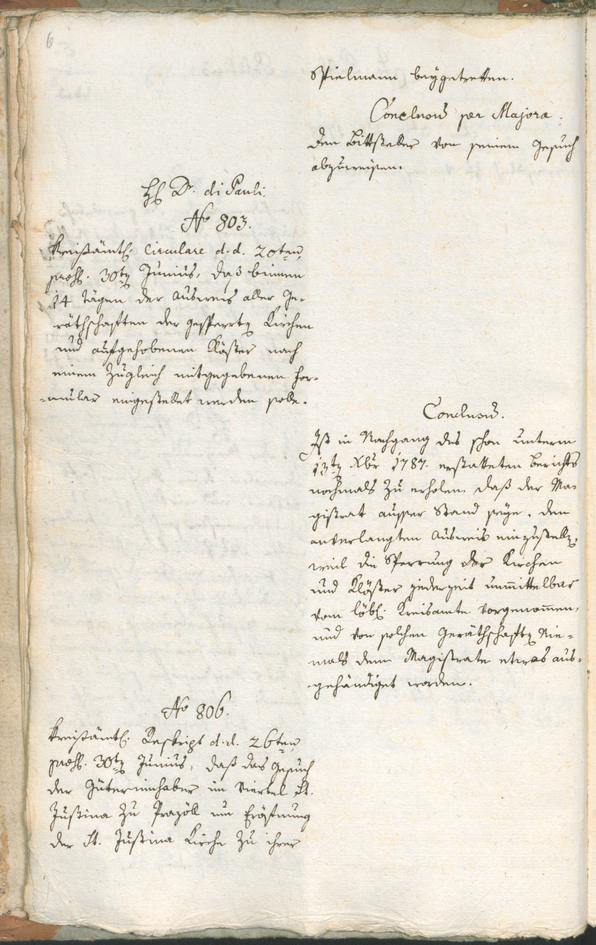 6
Spielmann beygetretten.
Conclusum per Majora:
den Bittsteller von seinem Gesuch
abzuweisen.
H. Dr. di Pauli
No 803.
Kreisämtl. Circulare d. d. 20ten
praes. 30ten Junius, daß binnen
14 tägen der Ausweis aller Ge-
räthschaften der gesperrten Kirchen
und aufgehobenen Klöster nach
einem zugleich mitgegebenen For-
mular eingestellet werden solle.
Conclusum.
Ist in Nachgang des schon unterm
13ten Xbr 1787. erstatteten Berichts
nochmals zu erholen, daß der Ma-
gistrat ausser Stand seye, den
anverlangten Ausweis einzustellen,
weil die Sperrung der Kirchen
und Klöster jederzeit unmittelbar
vom löbl. Kreisamte vorgenommen,
und von solchen Geräthschaften Nie-
mals dem Magistrate etwas aus-
gehändiget worden.
No 806.
Kreisämtl. Reskript d. d. 26ten
praes. 30ten Junius, daß das Gesuch
der Güterinnhaber im Viertel St.
Justina zu Prazöll um Eröffnung
der St. Justina Kirche zu ihrer